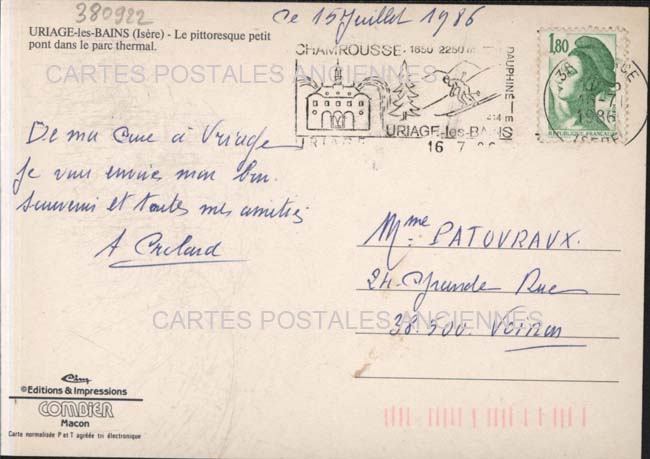 380922
ce 15 Juillet 1986
URIAGE-les-BAINS (Isère) - Le pittoresque petit
pont dans le parc thermal.
CARTES POSTALES ANCIENNES
CHAMROUSSE 1650 2250 m
DAUPHINE
414 m
URIAGE-les-BAINS
URIAGE
16 7
1,80
REPUBLIQUE FRANÇAISE
38
1986
ISERE
De ma cure à Uriage
je vous envoie mon bon
souvenir et toutes mes amitiés
Mme PATOURAUX.
24 Grande Rue
38.500. Voiron
CARTES POSTALES ANCIENNES
©Editions & Impressions
COMBIER
Macon
Carte normalisée P et T agréée tri électronique